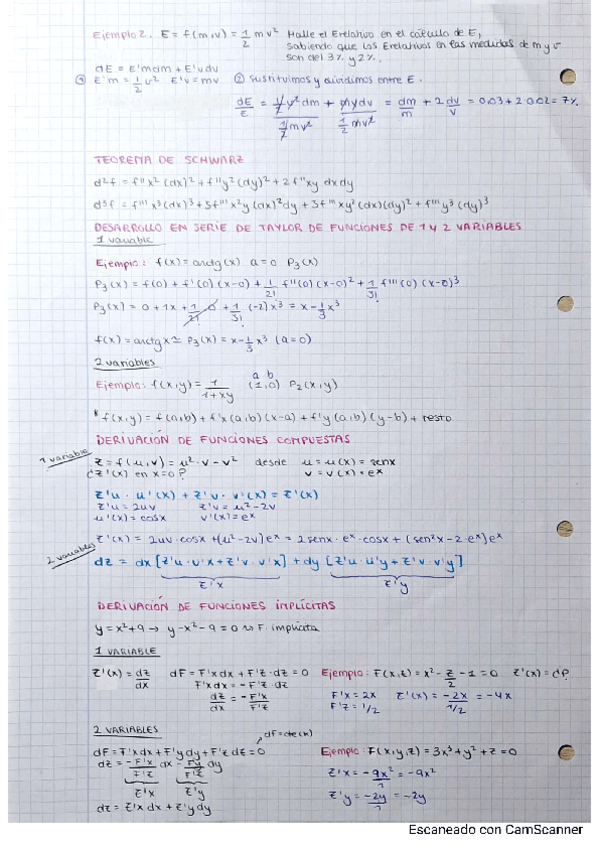 Ejemplo 2. E = f(m,v) = 1/2 m v² Halle el Erelativo en el cálculo de E,
sabiendo que los Erelativos en las medidas de m y v
son del 3% y 2%.
dE = E'm dm + E'v dv
① E'm = 1/2 v² E'v = mv ② Sustituimos y dividimos entre E.
dE/E = (1/2 v² dm)/(1/2 m v²) + (m v dv)/(1/2 m v²) = dm/m + 2 dv/v = 0.03 + 2 0.02 = 7%
TEOREMA DE SCHWARZ
d²f = f''x² (dx)² + f''y² (dy)² + 2f''xy dx dy
d³f = f'''x³ (dx)³ + 3f'''x²y (dx)² dy + 3f'''xy² (dx)(dy)² + f'''y³ (dy)³
DESARROLLO EN SERIE DE TAYLOR DE FUNCIONES DE 1 Y 2 VARIABLES
1 variable
Ejemplo: f(x) = arctg(x) a=0 P₃(x)
P₃(x) = f(0) + f'(0) (x-0) + 1/2! f''(0) (x-0)² + 1/3! f'''(0) (x-0)³
P₃(x) = 0 + 1x + 1/2! 0 + 1/3! (-2)x³ = x - 1/3 x³
f(x) = arctg x ≈ P₃(x) = x - 1/3 x³ (a=0)
2 variables
a b
Ejemplo: f(x,y) = 1/(1+xy) (1,0) P₂(x,y)
* f(x,y) = f(a,b) + f'x (a,b) (x-a) + f'y (a,b) (y-b) + resto
DERIVACIÓN DE FUNCIONES COMPUESTAS
1 variable
z = f(u,v) = u² · v - v² desde u = u(x) = senx
¿z'(x) en x=0? v = v(x) = eˣ
z'u · u'(x) + z'v · v'(x) = z'(x)
z'u = 2uv z'v = u² - 2v
u'(x) = cosx v'(x) = eˣ
z'(x) = 2uv · cosx + (u² - 2v) eˣ = 2senx · eˣ · cosx + (sen²x - 2·eˣ)eˣ
2 variables
dz = dx [z'u · u'x + z'v · v'x] + dy [z'u · u'y + z'v · v'y]
z'x z'y
DERIVACIÓN DE FUNCIONES IMPLÍCITAS
y = x² + 9 → y - x² - 9 = 0 → F. implícita
1 VARIABLE
z'(x) = dz/dx dF = F'x dx + F'z · dz = 0 Ejemplo: F(x,z) = x² - z/2 - 1 = 0 z'(x) = ¿?
F'x dx = - F'z · dz F'x = 2x z'(x) = -2x/(1/2) = -4x
dz/dx = - F'x/F'z F'z = 1/2
2 VARIABLES
dF = cte(x)
dF = F'x dx + F'y dy + F'z dz = 0 Ejemplo: F(x,y,z) = 3x³ + y² + z = 0
dz = - F'x/F'z dx - F'y/F'z dy z'x = -9x²/1 = -9x²
z'x z'y z'y = -2y/1 = -2y
dz = z'x dx + z'y dy
Escaneado con CamScanner